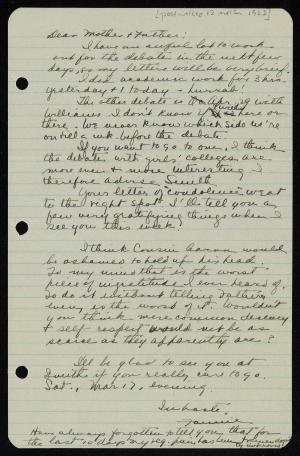 [postmarked 12 March 1922]
Dear Mother & Father:
I have an awful lot to work
on for the debate in the next few
days, so my letter will be very brief.
I did academic work for 3 hrs.
yesterday & 1 today – hurrah!
The other debate is on Apr. 29 with
Williams. I don't know if it's here or
there. We never know which side we're
on till a wk. before the debate.
If you want to go to one, I think
the debates with girls' colleges are
more even & more interesting & I
therefore advise Smith.
Your letter of condolence went
to the right spot. I'll tell you a
few very gratifying things when I
see you this week.
I think Cousin Aaron would
be ashamed to hold up his head.
To my mind that is the worst
piece of ingratitude I ever heard of.
To do it without telling Father
is the worst of it. Wouldn't
you think mere common decency
& self respect would not be as
scarce as they apparently are?
I'll be glad to see you at
Smith if you really care to go.
Sat., Mar 17, evening.
In haste,
Have always forgotten to tell you that for
the last 10 days my reg. pain has been